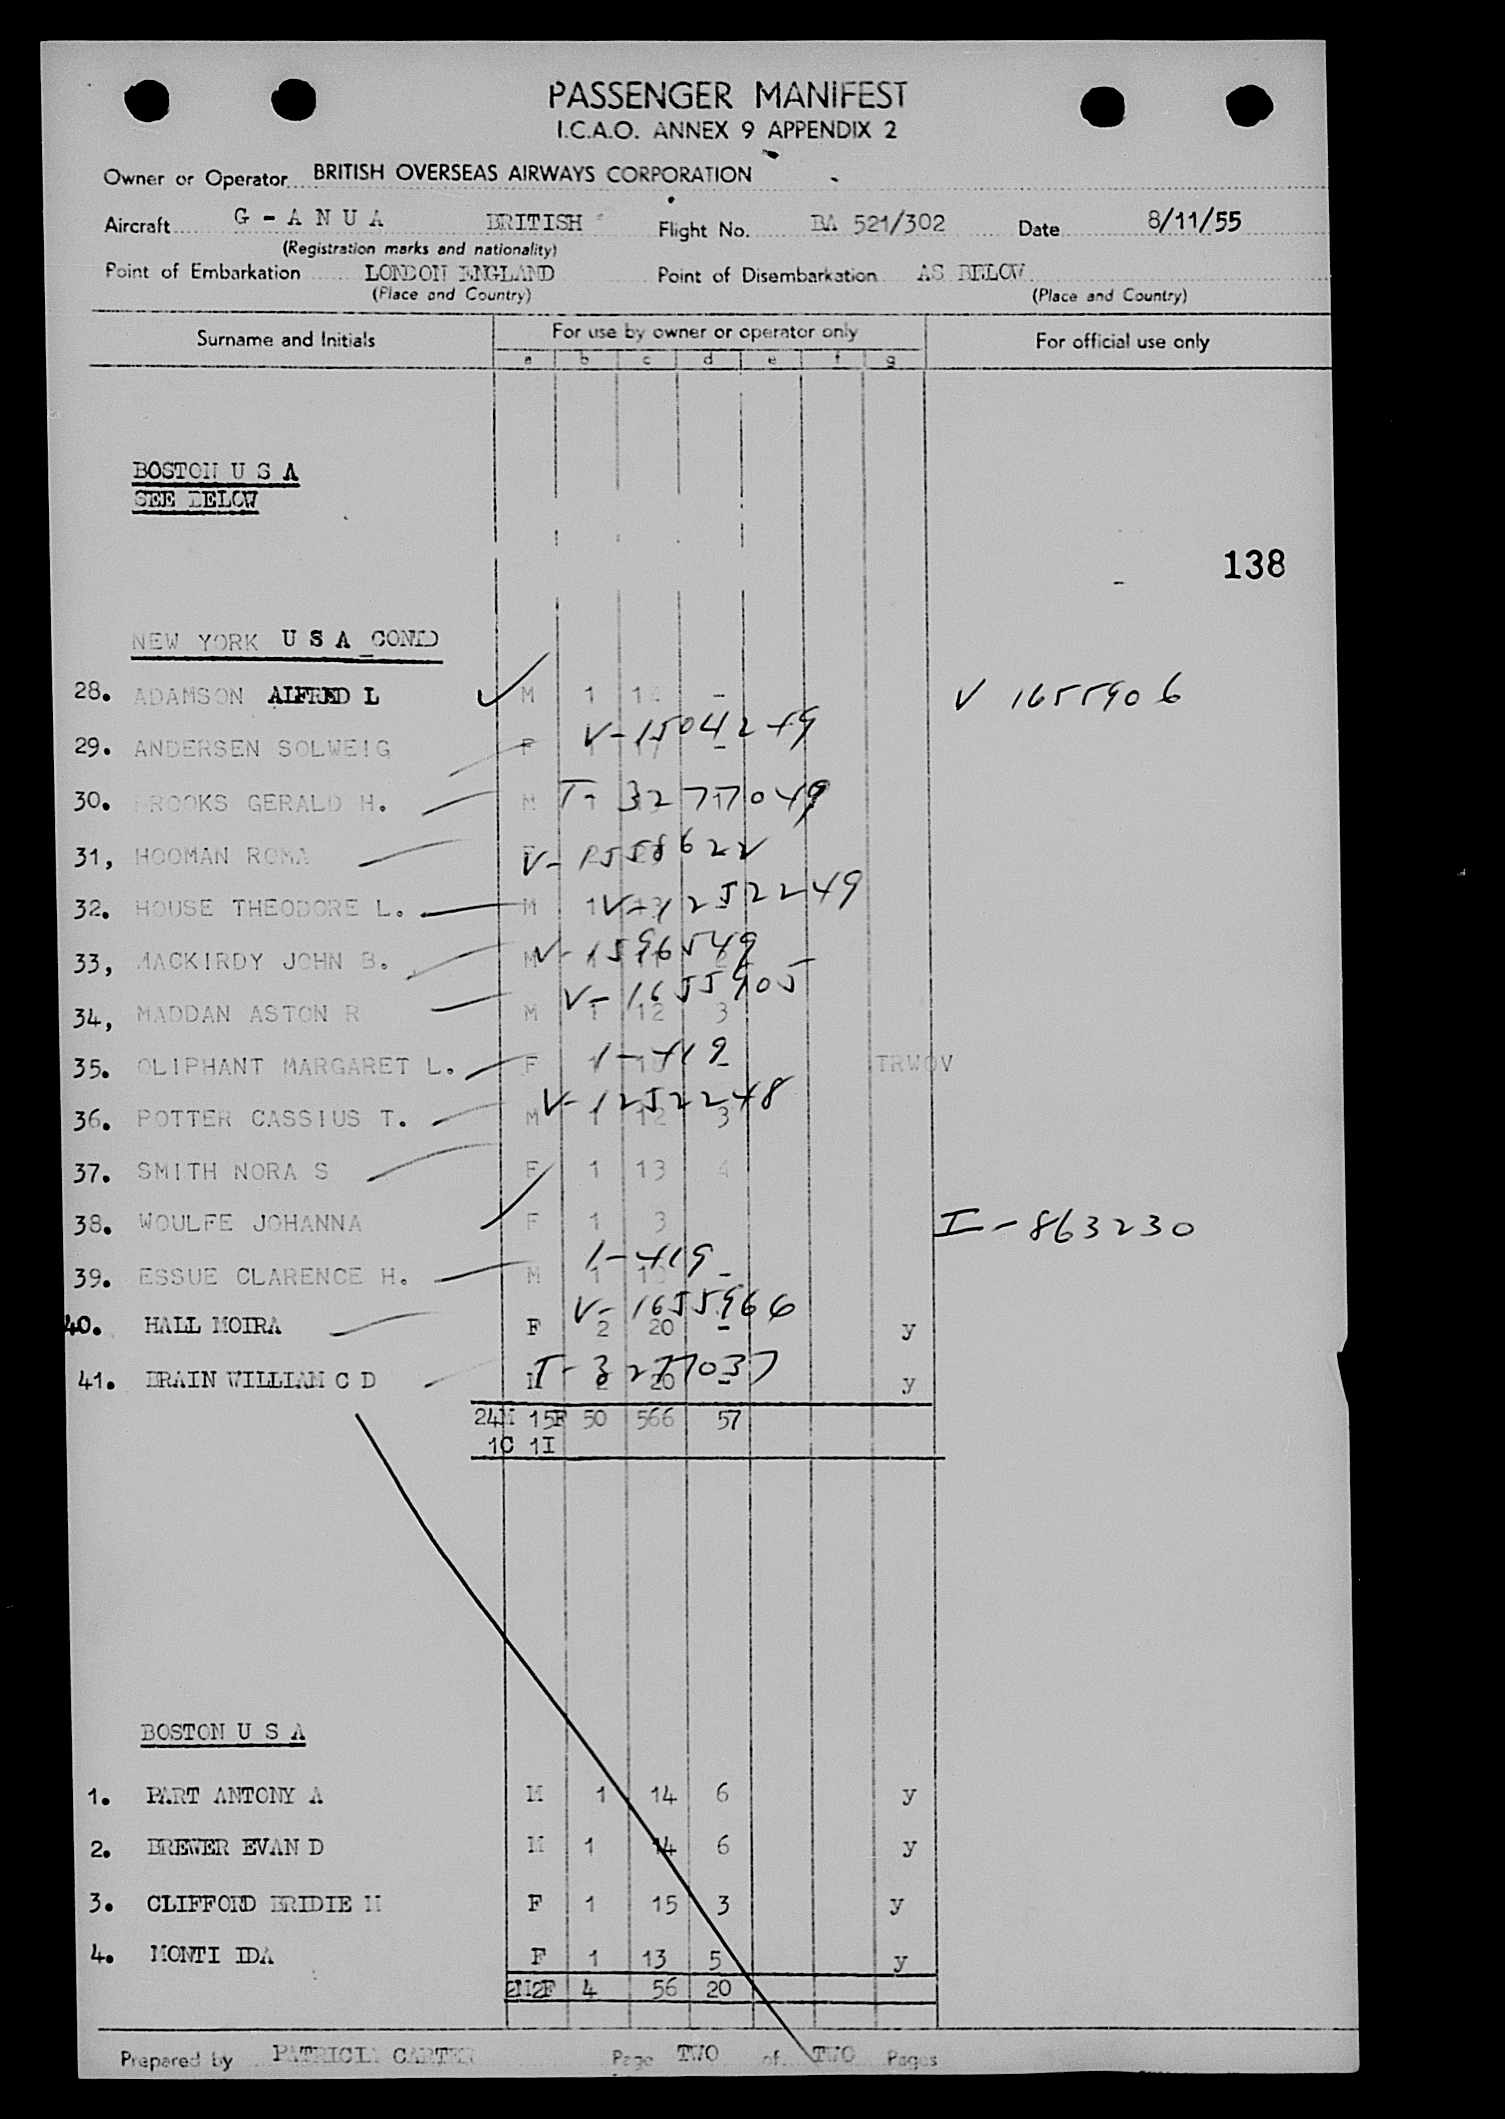 PASSENGER MANIFEST
I.C.A.O. ANNEX 9 APPENDIX 2
Owner or Operator BRITISH OVERSEAS AIRWAYS CORPORATION
Aircraft G - A N U A BRITISH Flight No. BA 521/302 Date 8/11/55
(Registration marks and nationality)
Point of Embarkation LONDON ENGLAND Point of Disembarkation AS BELOW
(Place and Country) (Place and Country)
Surname and Initials For use by owner or operator only For official use only
a b c d e f g
BOSTON U S A
SEE BELOW
138
NEW YORK U S A CONTD
28. ADAMSON ALFRED L M 1 14 - V 1655906
29. ANDERSEN SOLWEIG F V-1504249 -
30. BROOKS GERALD H. M T-3277049
31, HOOMAN ROMA V-1558622
32. HOUSE THEODORE L. M 1 V-1252249
33, MACKIRDY JOHN B. M V-1596549
34, MADDAN ASTON R M 1 12 3 V-1655905
35. OLIPHANT MARGARET L. F 1-419 - TRWOV
36. POTTER CASSIUS T. M 1 12 3 V-1252248
37. SMITH NORA S F 1 13 4
38. WOULFE JOHANNA F 1 3 I-863230
39. ESSUE CLARENCE H. M 1 1-419 -
40. HALL MOIRA F 2 20 - V-1655966 y
41. BRAIN WILLIAM C D M 2 20 - T-3277037 y
24M 15F 50 566 57
1C 1I
BOSTON U S A
1. PART ANTONY A M 1 14 6 y
2. BREWER EVAN D M 1 14 6 y
3. CLIFFORD BRIDIE M F 1 15 3 y
4. MONTI IDA F 1 13 5 y
2M2F 4 56 20
Prepared by PATRICIA CARTER Page TWO of TWO Pages